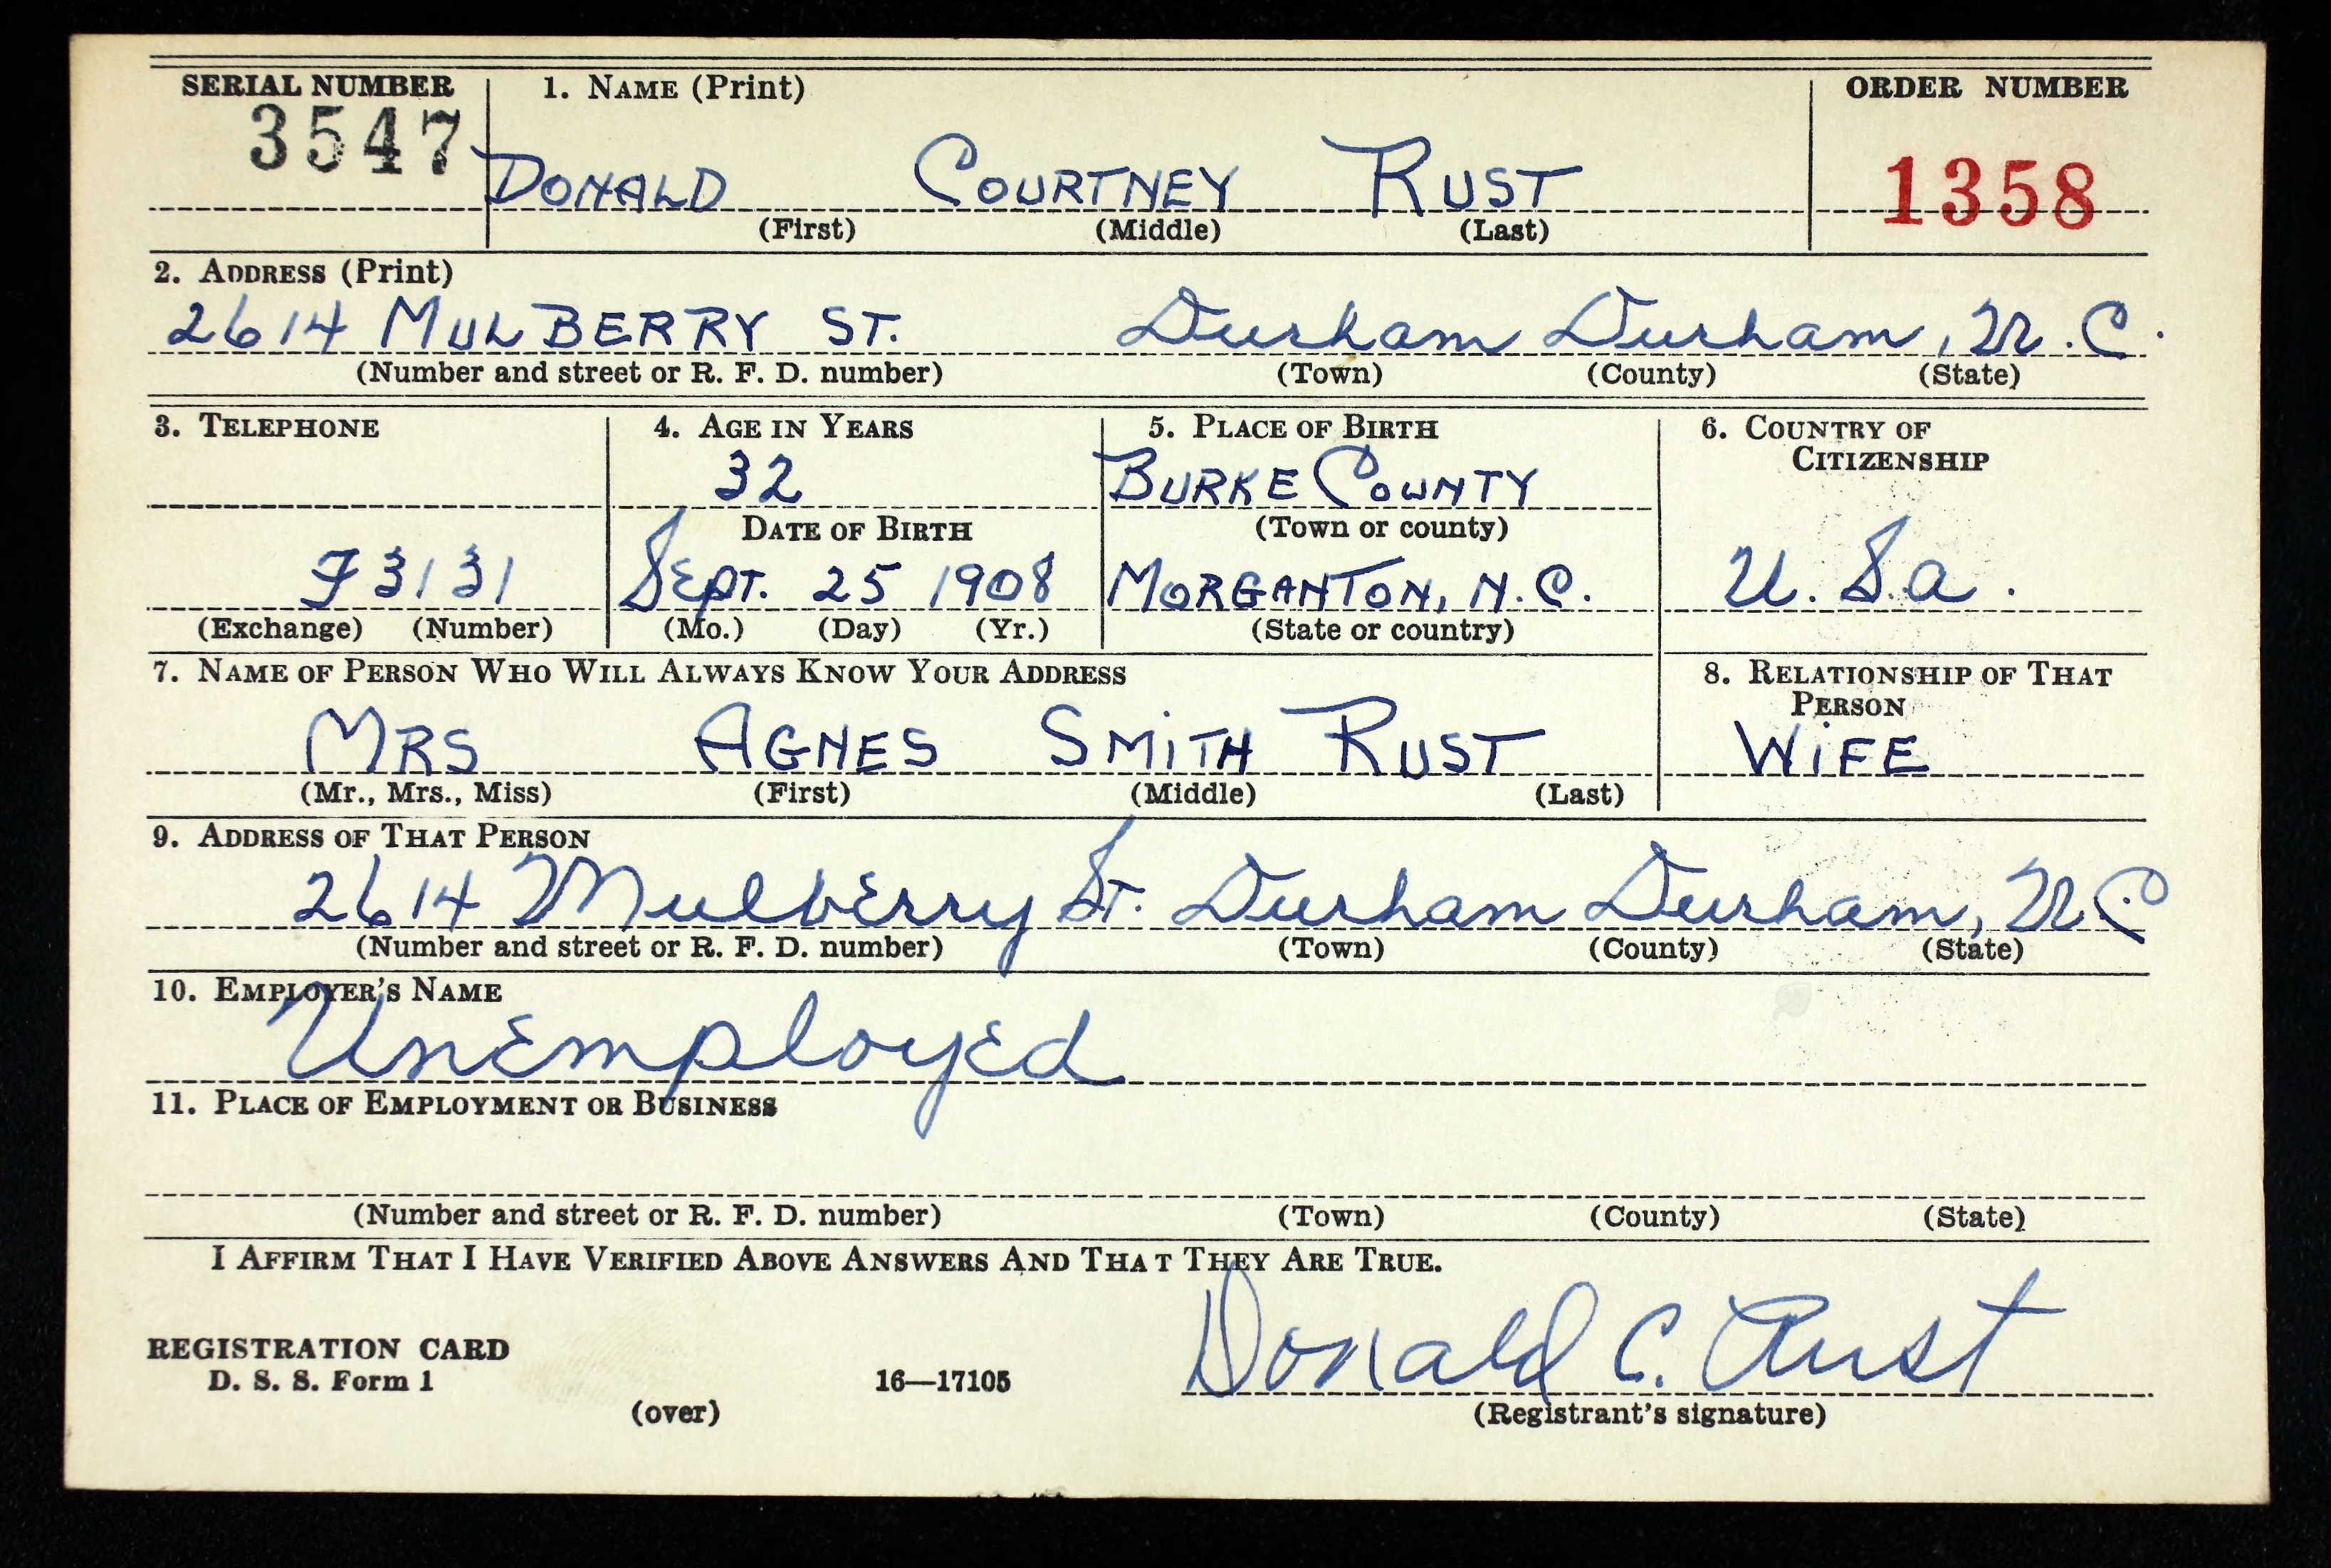 SERIAL NUMBER 1. NAME (Print) ORDER NUMBER
3547 DONALD COURTNEY RUST 1358
(First) (Middle) (Last)
2. ADDRESS (Print)
2614 MULBERRY ST. Durham Durham, N.C.
(Number and street or R. F. D. number) (Town) (County) (State)
3. TELEPHONE 4. AGE IN YEARS 5. PLACE OF BIRTH 6. COUNTRY OF CITIZENSHIP
32 BURKE COUNTY
DATE OF BIRTH (Town or county)
F3131 SEpT. 25 1908 MORGANTON, N.C. U.S.a.
(Exchange) (Number) (Mo.) (Day) (Yr.) (State or country)
7. NAME OF PERSON WHO WILL ALWAYS KNOW YOUR ADDRESS 8. RELATIONSHIP OF THAT PERSON
MRS AGNES SMiTH RUST WiFE
(Mr., Mrs., Miss) (First) (Middle) (Last)
9. ADDRESS OF THAT PERSON
2614 Mulberry St. Durham Durham, N.C
(Number and street or R. F. D. number) (Town) (County) (State)
10. EMPLOYER'S NAME
Unemployed
11. PLACE OF EMPLOYMENT OR BUSINESS
(Number and street or R. F. D. number) (Town) (County) (State)
I AFFIRM THAT I HAVE VERIFIED ABOVE ANSWERS AND THAT THEY ARE TRUE.
REGISTRATION CARD
D. S. S. Form 1 16—17105 Donald C. Rust
(over) (Registrant's signature)